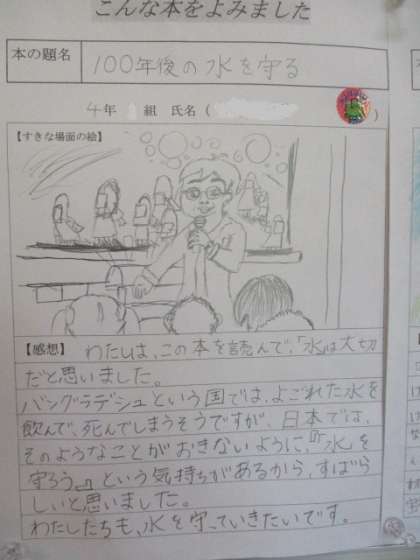 こんな本をよみました
本の題名
100年後の水を守る
4年 組 氏名( )
【すきな場面の絵】
【感想】 わたしは、この本を読んで、「水は大切
だと思いました。
バングラデシュという国では、よごれた水を
飲んで、死んでしまうそうですが、日本では、
そのようなことがおきないように、『水を
守ろう。』という気持ちがあるから、すばら
しいと思いました。
わたしたちも、水を守っていきたいです。